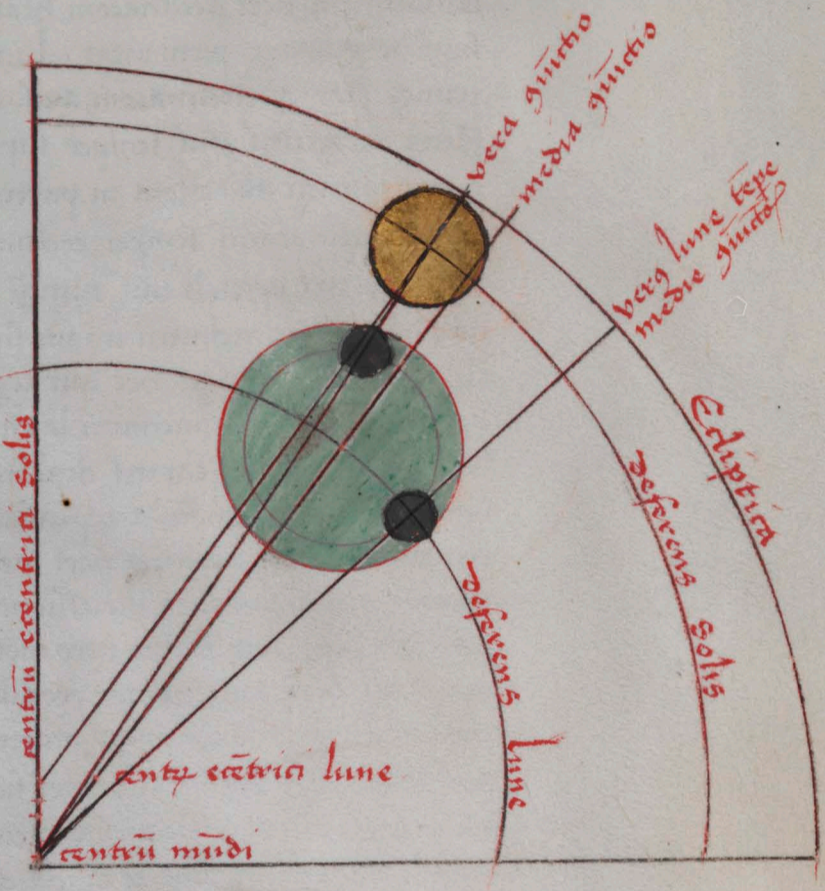 vera ꝯiūctio
media ꝯiūctio
verꝰ lune tēꝑe
medie ꝯiūctōꝭ
Ecliptica
deferens solis
deferens lune
centrū ecentrici solis
centꝝ ecētrici lune
centrū mūdi